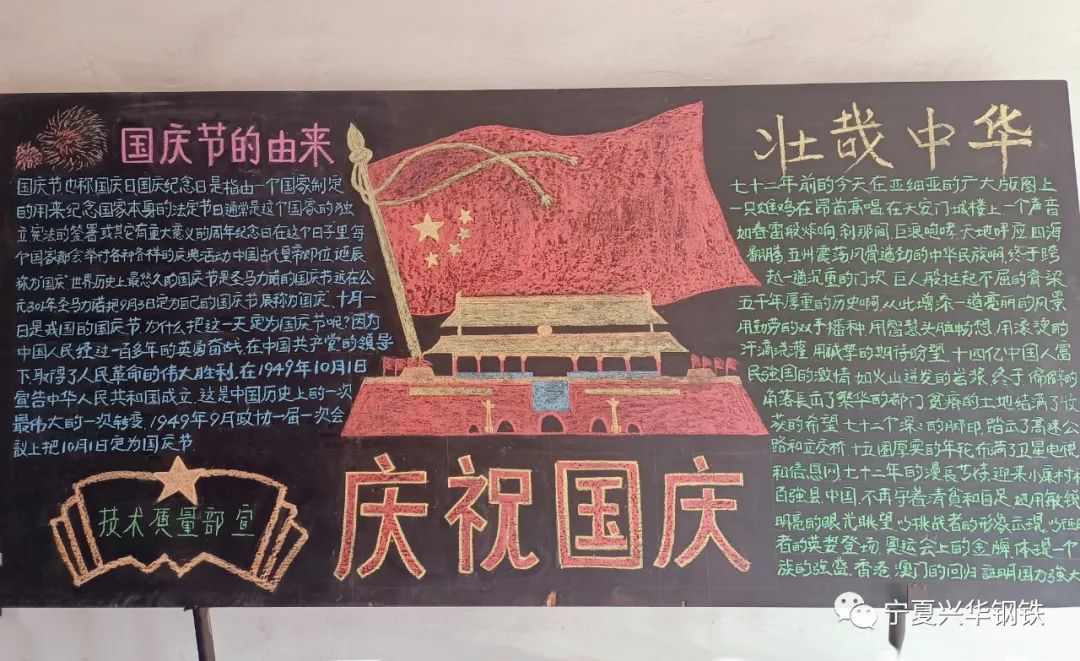 国庆节的由来
国庆节也称国庆日国庆纪念日是指由一个国家制定
的用来纪念国家本身的法定节日通常是这个国家的独
立宪法的签署或其它有重大意义的周年纪念日在这个日子里每
个国家都会举行各种各样的庆典活动中国古代皇帝即位诞辰
称为国庆世界历史上最悠久的国庆节是圣马力诺的国庆节远在公
元301年圣马力诺把9月3日定为自己的国庆节辰称为国庆.十月一
日是我国的国庆节为什么把这一天定为国庆节呢?因为
中国人民经过一百多年的英勇奋战,在中国共产党的领导
下,取得了人民革命的伟大胜利,在1949年10月1日
宣告中华人民共和国成立.这是中国历史上的一次
最伟大的一次转变,1949年9月政协一届一次会
议上把10月1日定为国庆节
技术质量部宣
庆祝国庆
壮哉中华
七十二年前的今天在亚细亚的广大版图上
一只雄鸡在昂首高唱.在天安门城楼上,一个声音
如春雷般炸响,刹那间,巨浪咆哮,天地呼应,四海
翻腾,五州震荡,风骨遒劲的中华民族啊,终于跨
越一道沉重的门坎 巨人般挺起不屈的脊梁
五千年厚重的历史啊,从此增添一道亮丽的风景
用勤劳的双手播种,用智慧头脑畅想,用滚烫的
汗滴浇灌,用诚挚的期待盼望,十四亿中国人富
民强国的激情,如火山迸发的岩浆,终于,偏僻的
角落长出了繁华的都门,贫瘠的土地结满了收
获的希望,七十二个深深的脚印,踏示了高速公
路和立交桥,十五圈厚实的年轮,布满了卫星电视
和信息网,七十二年的漫长苦情,迎来小康村和
百强县,中国,不再守着清贫和自足,她用敏锐
明亮的眼光眺望,当挑战者的形象示现,当
者的英姿登场,奥运会上的金牌,体现一个
族的强盛,香港,澳门的回归,证明国力强大
宁夏兴华钢铁